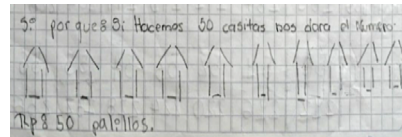 5º porque 8 Si Hacemos 50 casitas nos dara el Número
Rp8 50 palillos.